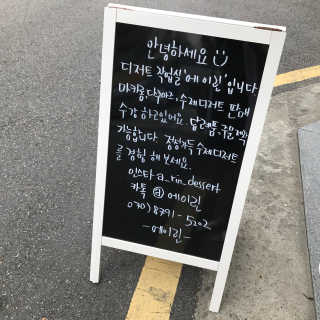 안녕하세요
디저트 작업실 '에이린' 입니다
마카롱, 다쿠아즈, 수제디저트 판매
수강 하고있어요. 답례품, 주문제작
가능합니다 정성가득 수제디저트
를 경험 해 보세요.
인스타 a_rin_dessert
카톡 @ 에이린
070) 8791-5202
-에이린-